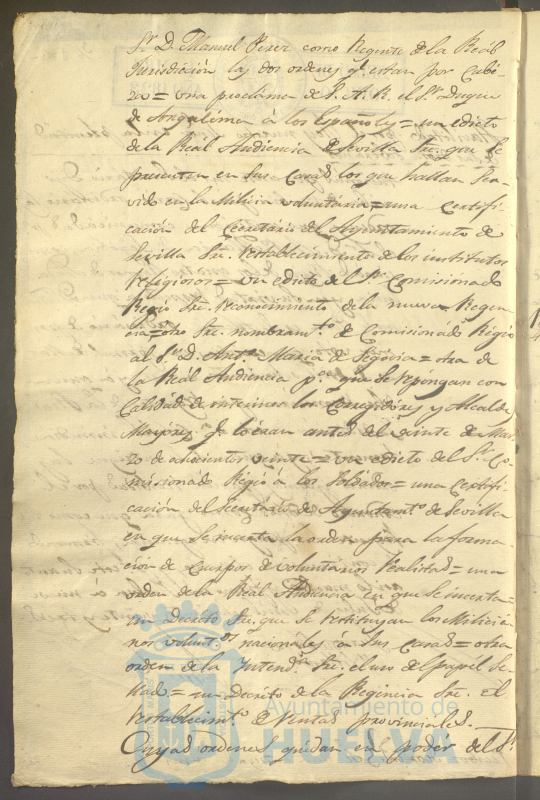 Sr. D. Manuel Perez como Regente de la Real
Jurisdiccion las dos ordenes qe. estan por Cabe-
za= una proclama de S. A. R. el Sr. Duque
de Angulema á los Españoles= un edicto
de la Real Audiencia de Sevilla Sre. que se
presenten en sus Casas los que hallan Ser-
vido en la Milicia voluntaria= una Certifi-
cación del Secretario del Ayuntamiento de
Sevilla Sre. restablecimiento de los institutos
religiosos= un edicto del Sr. Comisionado
Regio Sre. reconocimiento de la nueva Regen-
cia= otro Sre. nombramto. de Comisionado Regio
al Sr. D. Anto. Maria de Segovia= otra de
la Real Audiencia pa. que se repongan con
Calidad de interinos los Corregidores y Alcaldes
Mayores qe. lo eran antes del veinte de Mar-
zo de ochocientos veinte= un edicto del Sr. Co-
misionado Regio á los Soldados= una Certifi-
cación del Secretario de Ayuntamto. de Sevilla
en que se incerta la orden para la forma-
cion de Cuerpos de voluntarios Realistas= una
orden de la Real Audiencia en que se incerta
un Decreto Sre. que se restituyan los Milicia-
nos voluntos. nacionales á sus Casas= otra
orden de la Intenda. Sre. el uso de papel Se-
llado= un decreto de la Regencia Sre. el
restablecimto. de Rentas provinciales.
Cuyas ordenes quedan en poder del Sr.
Ayuntamiento de
HUELVA